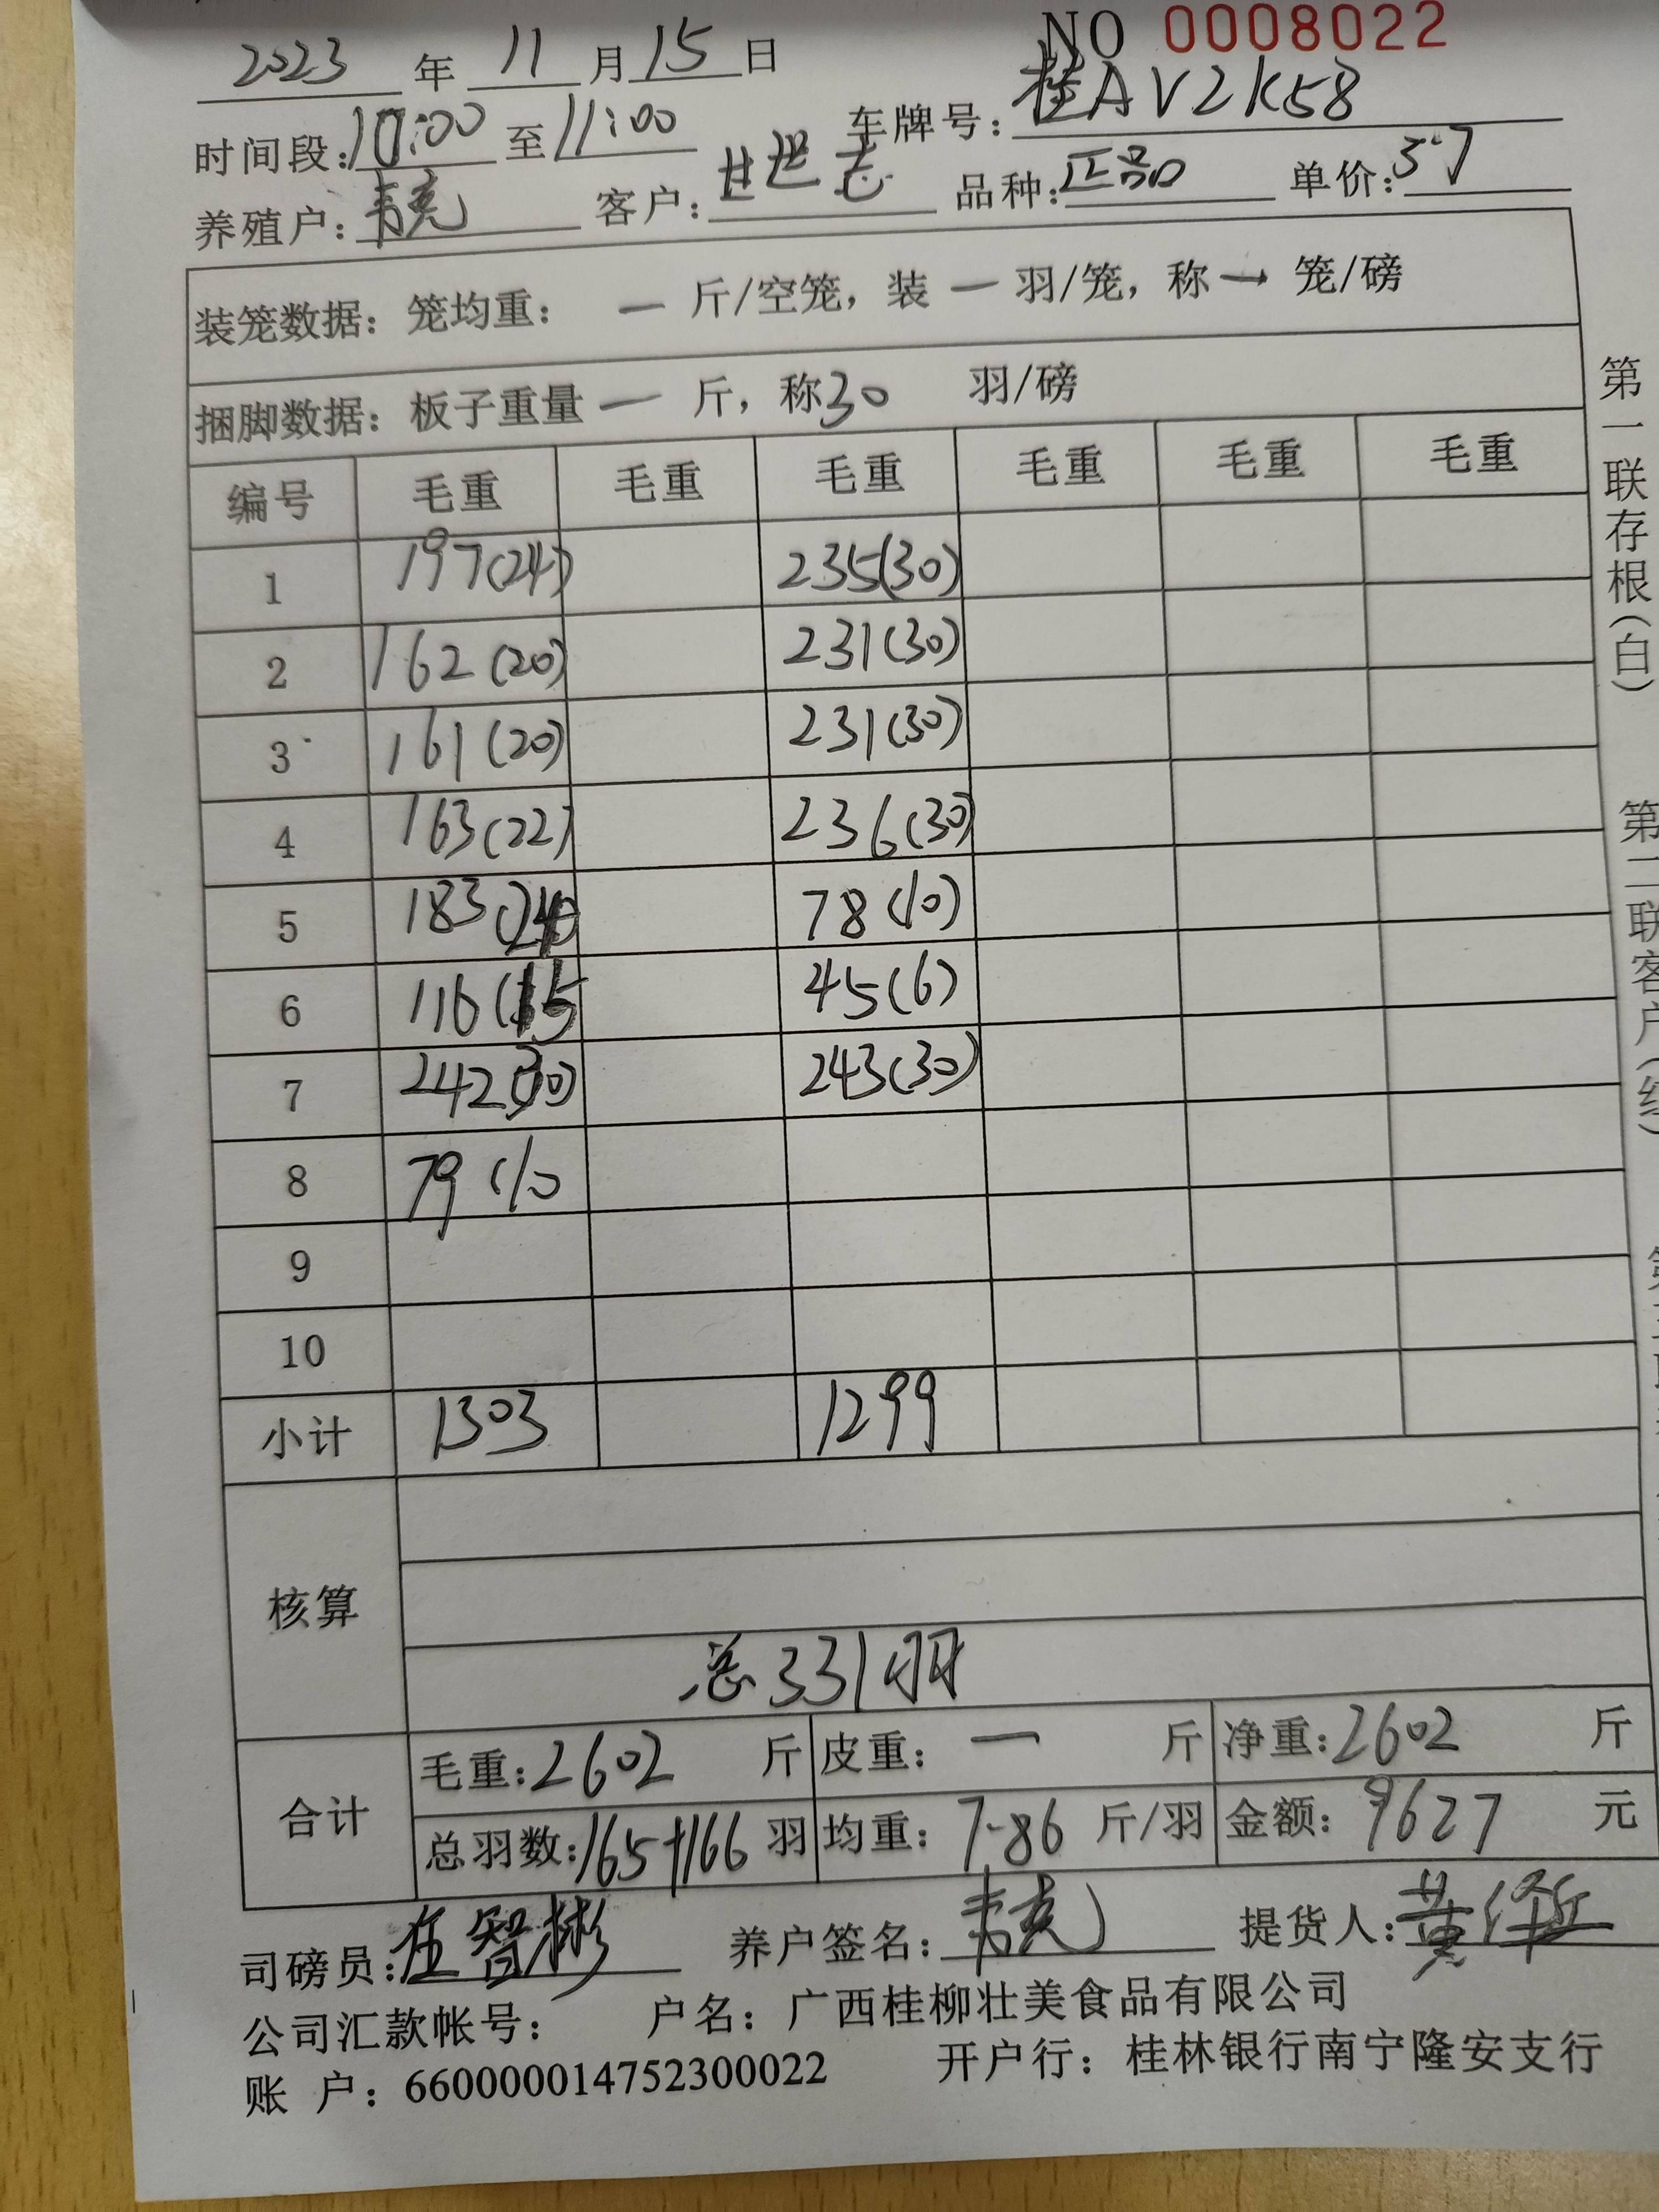 NO 0008022
2023 年 11 月 15 日
时间段: 10:00 至 11:00 车牌号: 桂AV2K58
养殖户: 韦亮 客户: 品种: 正品 单价: 3.7
装笼数据: 笼均重: 一 斤/空笼, 装 一 羽/笼, 称 一 笼/磅
捆脚数据: 板子重量 一 斤, 称 30 羽/磅
编号 毛重 毛重 毛重 毛重 毛重 毛重
1 197(24) 235(30)
2 162(20) 231(30)
3 161(20) 231(30)
4 163(22) 236(30)
5 183 78(10)
6 116(15 45(6)
7 242(30) 243(30)
8 79(10
9
10
小计 1303 1299
核算
总331羽
合计
毛重: 2602 斤 皮重: 一 斤 净重: 2602 斤
总羽数: 165+166 羽 均重: 7.86 斤/羽 金额: 9627 元
司磅员: 伍智彬 养户签名: 韦亮 提货人: 黄
公司汇款帐号: 户名: 广西桂柳壮美食品有限公司
账 户: 660000014752300022 开户行: 桂林银行南宁隆安支行
第一联存根(白)
第二联客户(红)